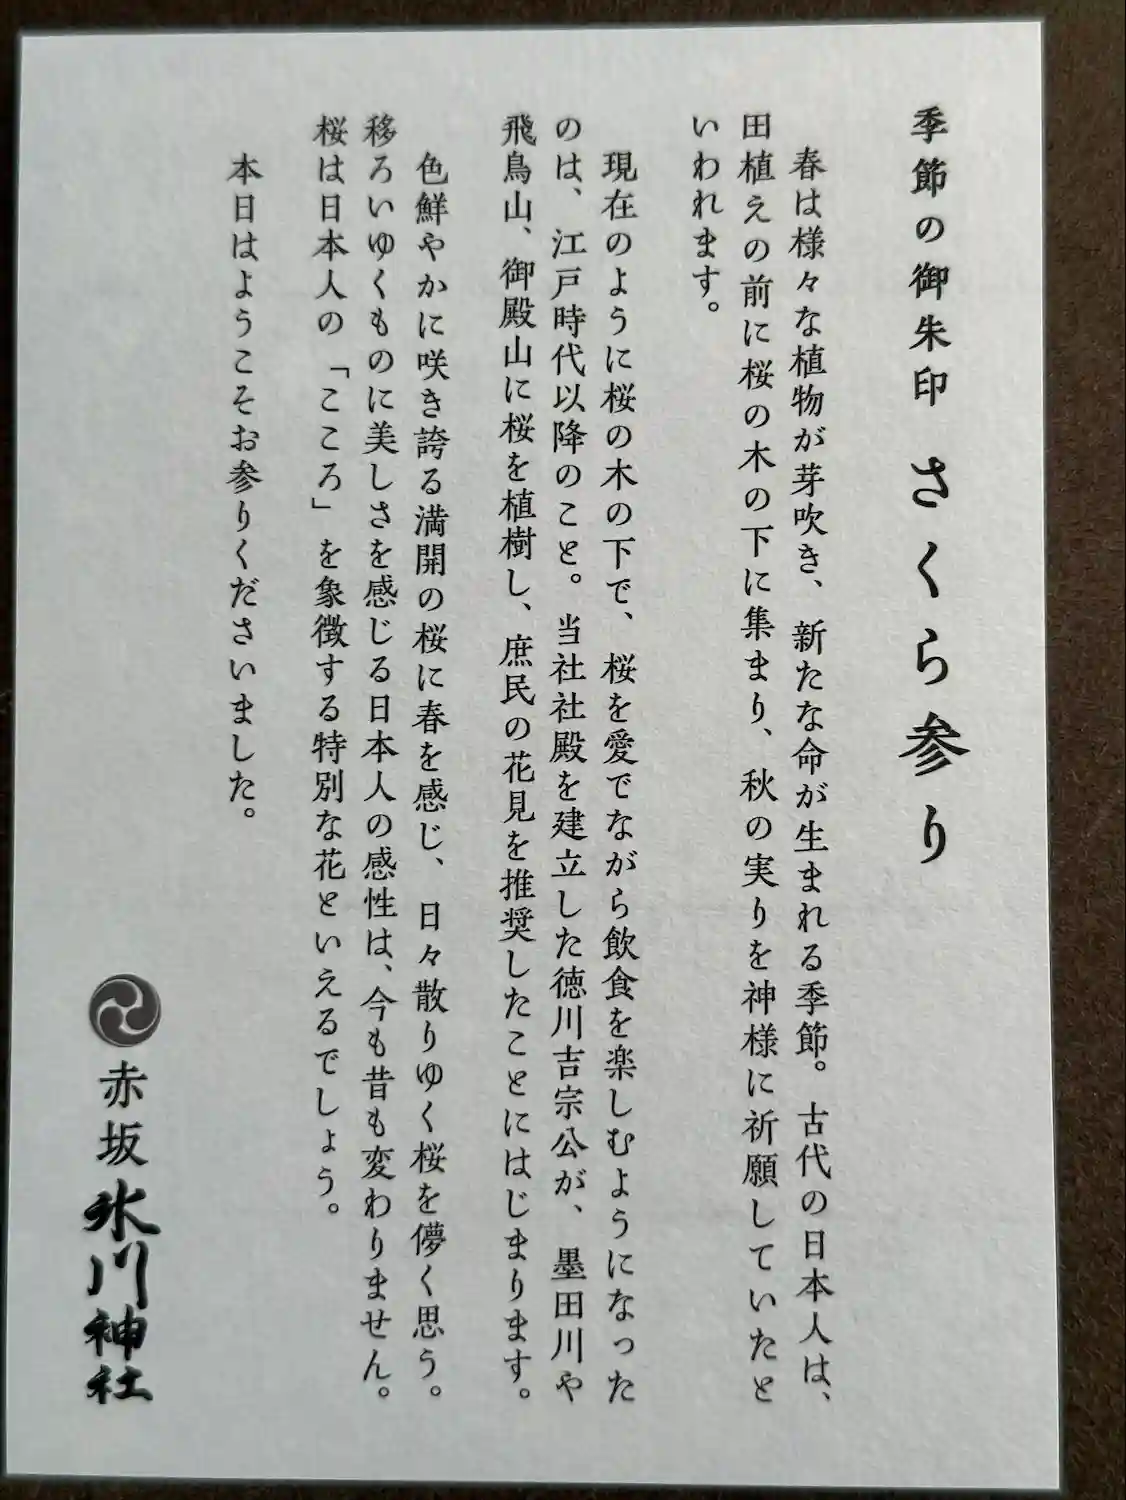 季節の御朱印 さくら参り
春は様々な植物が芽吹き、新たな命が生まれる季節。古代の日本人は、
田植えの前に桜の木の下に集まり、秋の実りを神様に祈願していたと
いわれます。
現在のように桜の木の下で、桜を愛でながら飲食を楽しむようになった
のは、江戸時代以降のこと。当社社殿を建立した徳川吉宗公が、墨田川や
飛鳥山、御殿山に桜を植樹し、庶民の花見を推奨したことにはじまります。
色鮮やかに咲き誇る満開の桜に春を感じ、日々散りゆく桜を儚く思う。
移ろいゆくものに美しさを感じる日本人の感性は、今も昔も変わりません。
桜は日本人の「こころ」を象徴する特別な花といえるでしょう。
本日はようこそお参りくださいました。
赤坂氷川神社